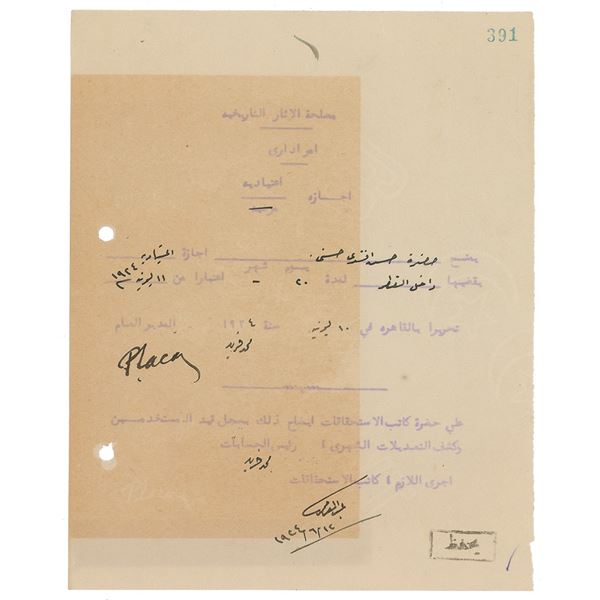 391
مصلحة الاثار التاريخيه
امر ادارى
اجازه اعتياديه
مرضيه
يمنح حضرة حسن افندى حسنى اجازة اعتيادية
يقضيها داخل القطر لمدة ٢٠ يوم شهر - اعتبارا من ١١ يونيه ١٩٢٤
تحريرا بالقاهره في ١٠ يونيه سنة ١٩٢٤ المدير العام
محمد فريد
علي حضرة كاتب الاستحقاقات ايضاح ذلك بسجل قيد المستخدمين
وكشف التعديلات الشهرى / رئيس الحسابات
محمد فريد
اجرى اللازم / كاتب الاستحقاقات
١٩٢٤/٦/١٢
يحفظ